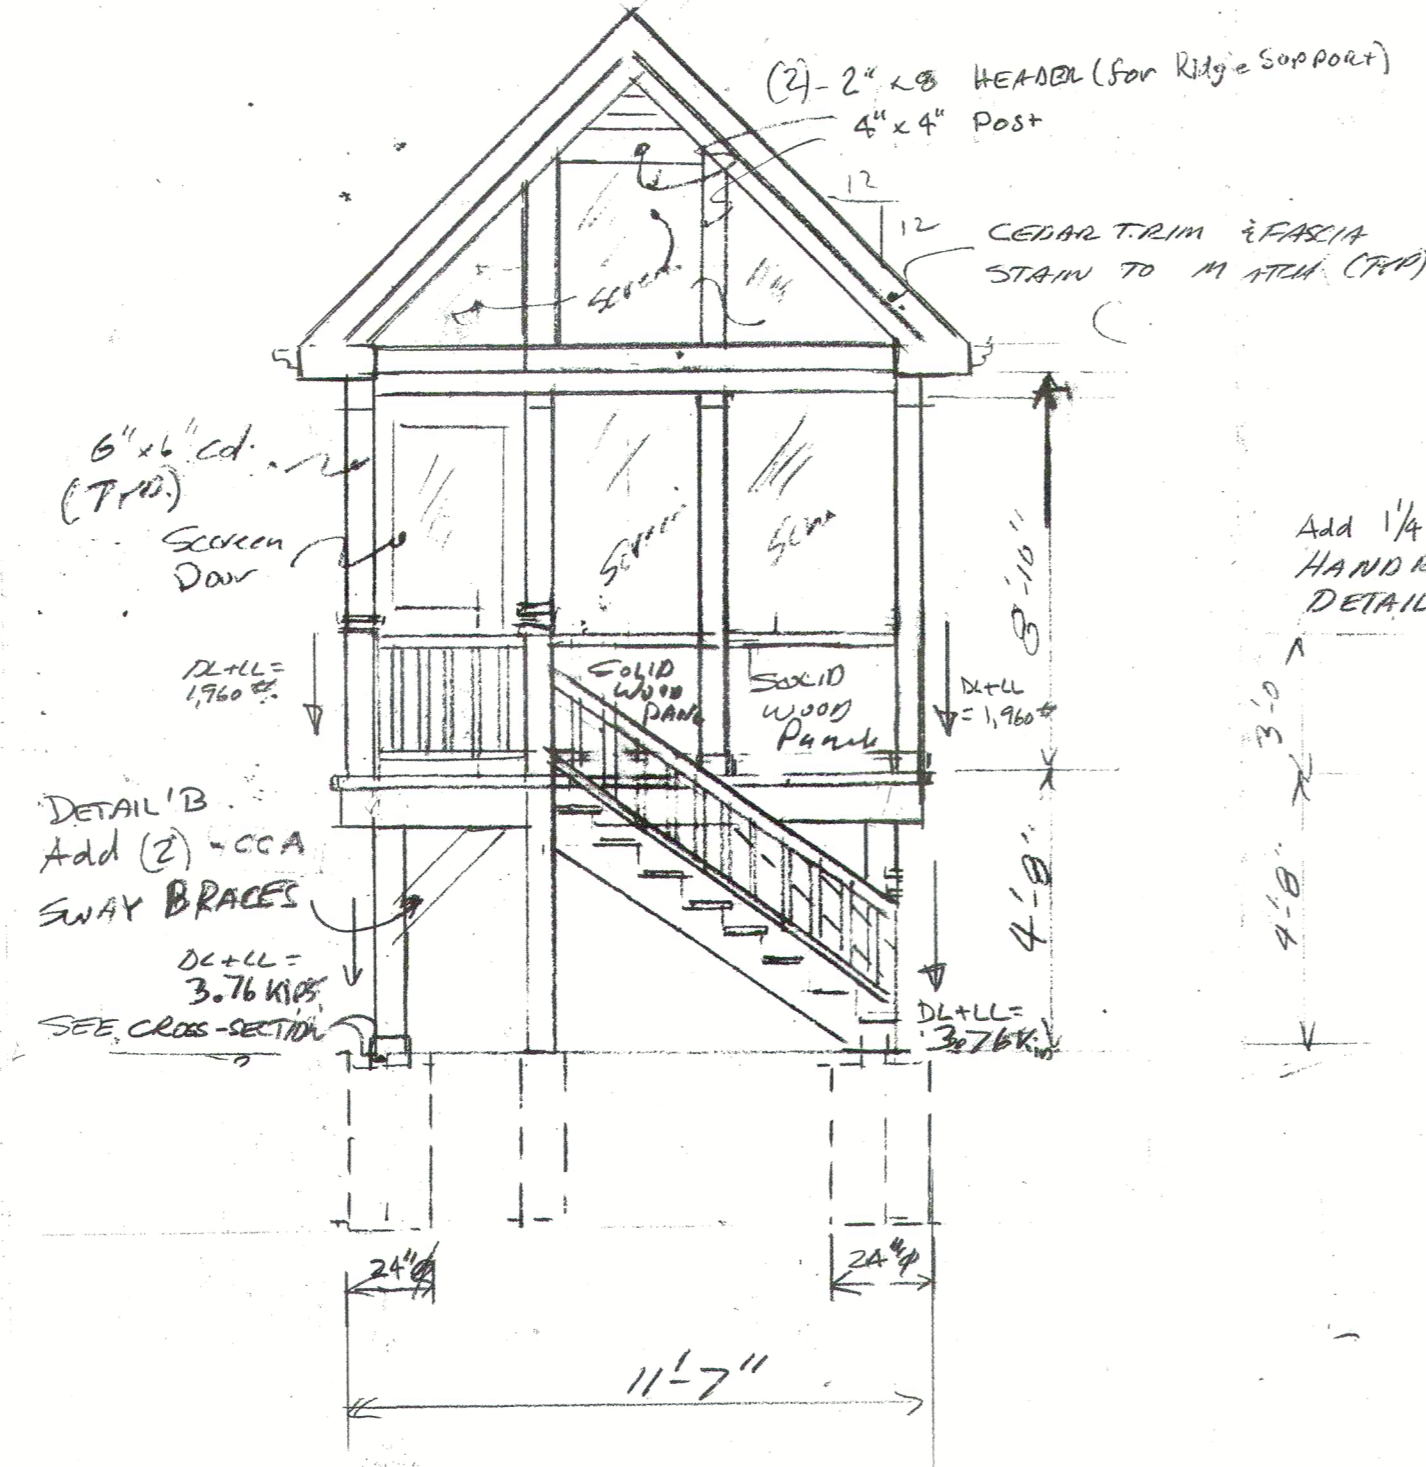 (2)-2"x8 HEADER (for Ridge Support)
4"x4" Post
12
12
CEDAR TRIM & FASCIA
STAIN TO MATCH (TYP)
Screen
6"x6" Col.
(TYP.)
Screen
Door
Screen
Scrn
8'-10"
Add 1 1/4
HAND R
DETAIL
DL+LL=
1,960#
SOLID
WOOD
PANL
SOLID
WOOD
Panel
DL+LL
=1,960#
3'-0
DETAIL 'B
Add (2)-CCA
SWAY BRACES
4'-8"
4'-8"
DL+LL=
3.76 KIPS
SEE CROSS-SECTION
DL+LL=
3.76 Kip
24"ϕ
24"ϕ
11'-7"